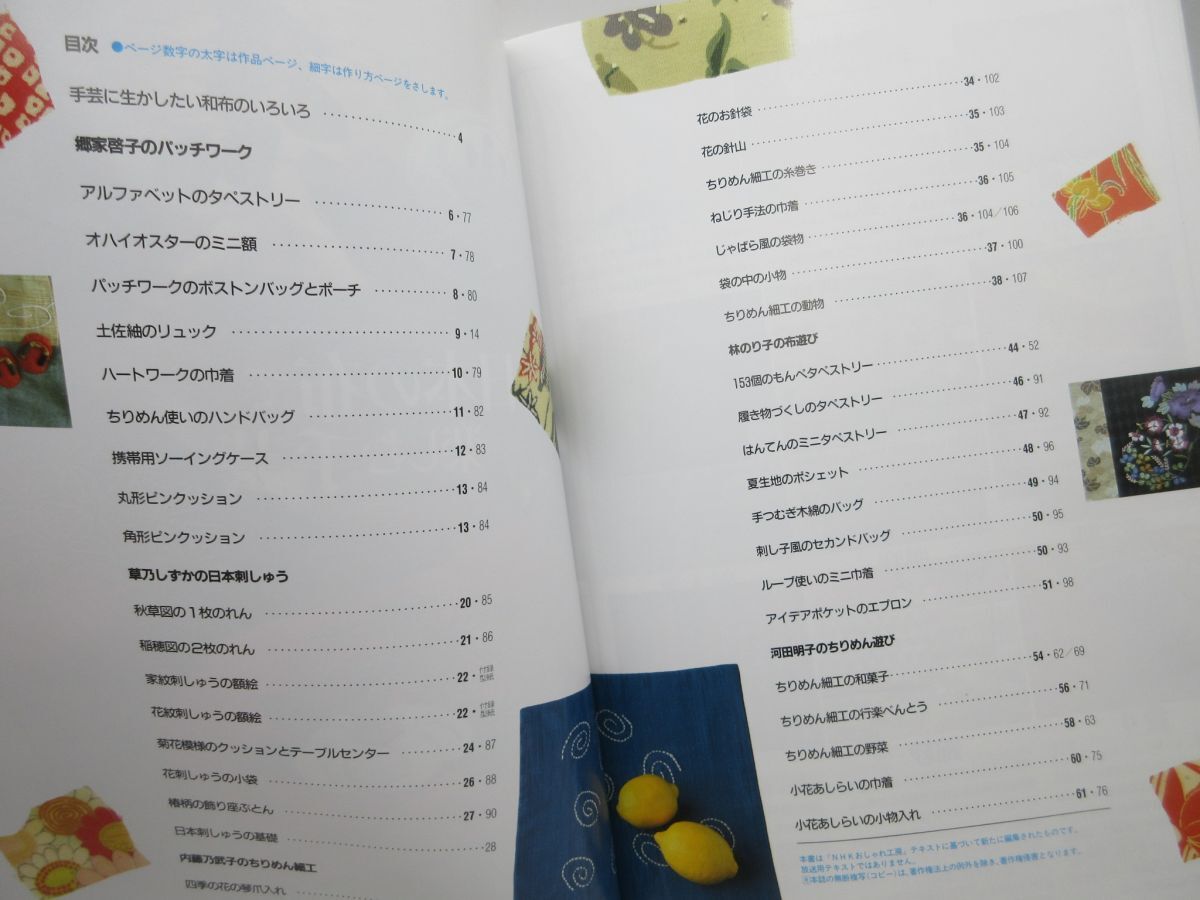 目次 ●ページ数字の太字は作品ページ、細字は作り方ページをさします。
手芸に生かしたい和布のいろいろ 4
郷家啓子のパッチワーク
アルファベットのタペストリー 6・77
オハイオスターのミニ額 7・78
パッチワークのボストンバッグとポーチ 8・80
土佐紬のリュック 9・14
ハートワークの巾着 10・79
ちりめん使いのハンドバッグ 11・82
携帯用ソーイングケース 12・83
丸形ピンクッション 13・84
角形ピンクッション 13・84
草乃しずかの日本刺しゅう
秋草図の1枚のれん 20・85
稲穂図の2枚のれん 21・86
家紋刺しゅうの額絵 22・付録型紙
花紋刺しゅうの額絵 22・付録型紙
菊花模様のクッションとテーブルセンター 24・87
花刺しゅうの小袋 26・88
椿柄の飾り座ぶとん 27・90
日本刺しゅうの基礎 28
内藤乃武子のちりめん細工
四季の花の琴爪入れ
花のお針袋 34・102
花の針山 35・103
ちりめん細工の糸巻き 35・104
ねじり手法の巾着 36・105
じゃばら風の袋物 36・104／106
袋の中の小物 37・100
ちりめん細工の動物 38・107
林のり子の布遊び
153個のもんぺタペストリー 44・52
履き物づくしのタペストリー 46・91
はんてんのミニタペストリー 47・92
夏生地のポシェット 48・96
手つむぎ木綿のバッグ 49・94
刺し子風のセカンドバッグ 50・95
ループ使いのミニ巾着 50・93
アイデアポケットのエプロン 51・98
河田明子のちりめん遊び
ちりめん細工の和菓子 54・62／69
ちりめん細工の行楽べんとう 56・71
ちりめん細工の野菜 58・63
小花あしらいの巾着 60・75
小花あしらいの小物入れ 61・76
本書は「NHKおしゃれ工房」テキストに基づいて新たに編集されたものです。
放送用テキストではありません。
本誌の無断複写（コピー）は、著作権法上の例外を除き、著作権侵害となります。